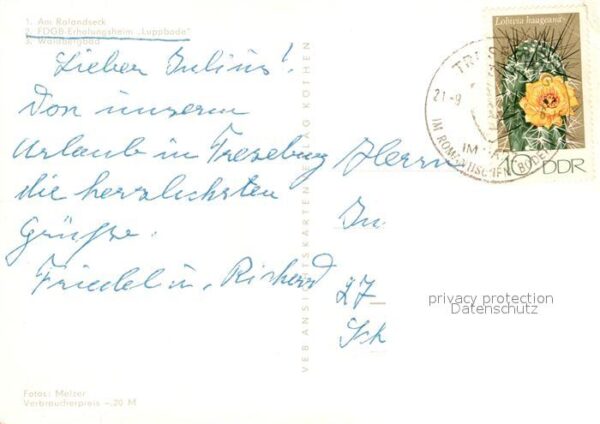 1. Am Rolandseck
2. FDGB-Erholungsheim „Luppbode"
3. Waldbergbad
Lieber Julius!
Von unserem
Urlaub in Treseburg
die herzlichsten
Grüße.
Friedel u. Richard
Herrn
Ju
27
Sch
VEB ANSICHTSKARTENVERLAG KÖTHEN
Lobivia haageana
10 DDR
TRES
21.-9
IM
IM ROMANTISCHEN BODE
privacy protection
Datenschutz
Fotos: Melzer
Verbraucherpreis -,20 M